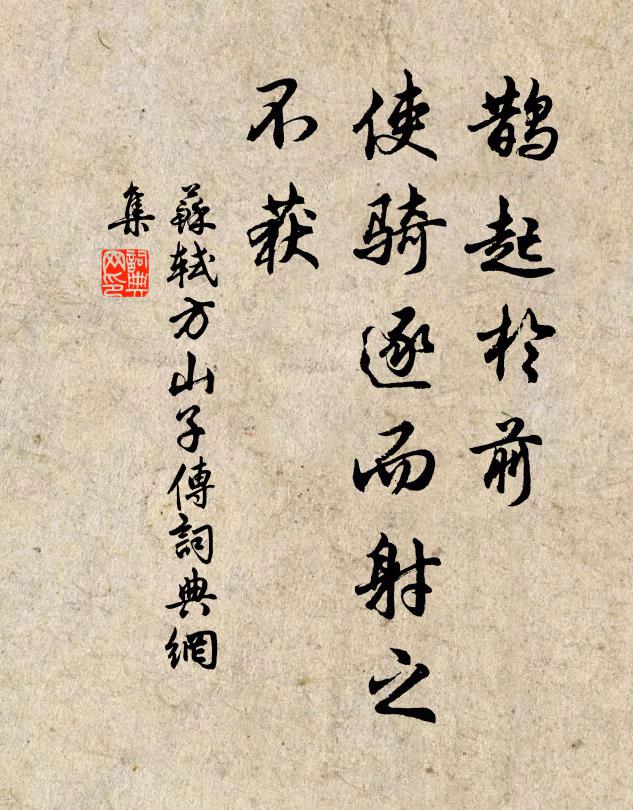 鹊起於前
使骑逐而射之
不获
蘇軾方山子傳詞典網
集
詞典
网印